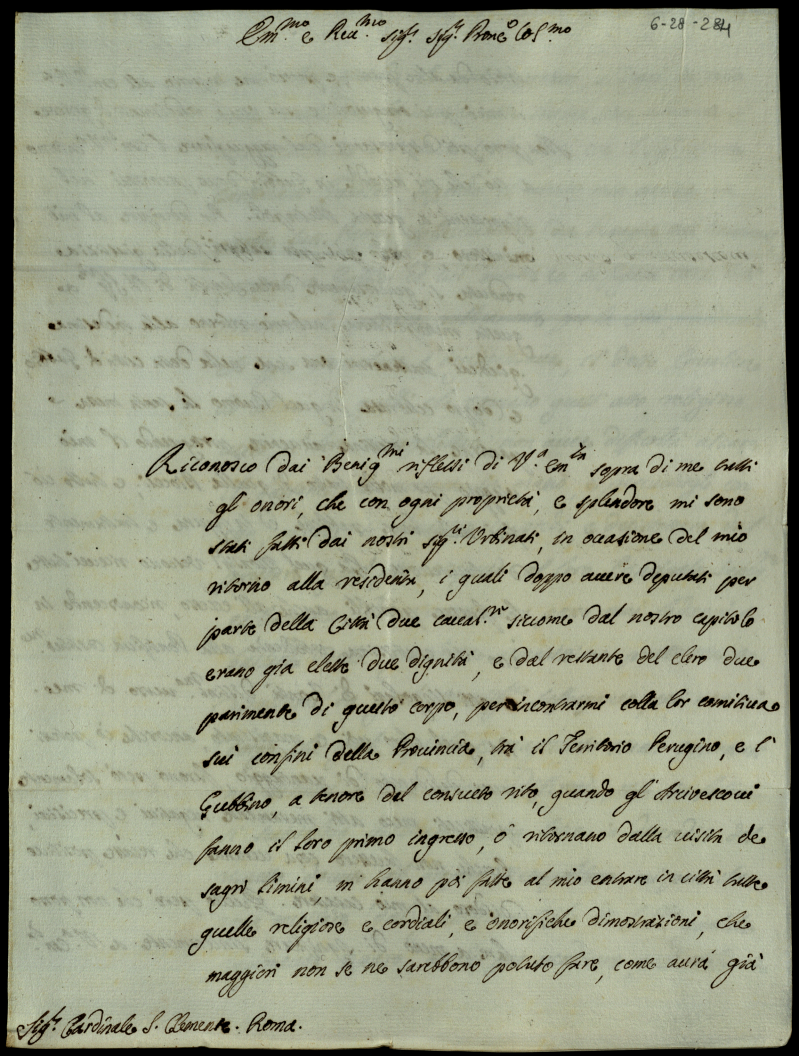 Em.mo e Rev.mo Sig.r Sig.r Prone Col.mo
6-28-284
Riconosco dai Benig.mi riflessi di V.a Em.za sopra di me tutti
gl'onori, che con ogni proprietà, e splendore mi sono
stati fatti dai nostri Sig.ri Urbinati, in occasione del mio
ritorno alla residenza, i quali doppo avere deputati per
parte della Città due caval.ri siccome dal nostro capitolo
erano gia elette due dignità, e dal restante del clero due
parimente di questo corpo, per incontrarmi colla lor comitiva
sui confini della Provincia, trà il Territorio Perugino, e l'
Gubbino, a tenore del consueto rito, quando gl'Arcivescovi
fanno il loro primo ingresso, ò ritornano dalla visita de
sagri limini, m'hanno poi fatte al mio entrare in città tutte
quelle religiose e cordiali, e onorifiche dimostrazioni, che
maggiori non se ne sarebbono potuto fare, come aurà già
Sig.r Cardinale S. Clemente. Roma.